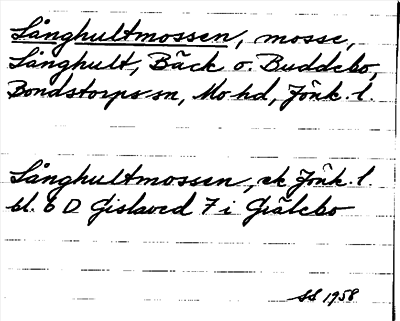 Långhultmossen, mosse,
Långhult, Bäck o. Buddebo,
Bondstorps sn, Mo hd, Jönk. l.
Långhultmossen, ek Jönk. l.
bl. 6 D Gislaved 7 i Grälebo
SS 1958